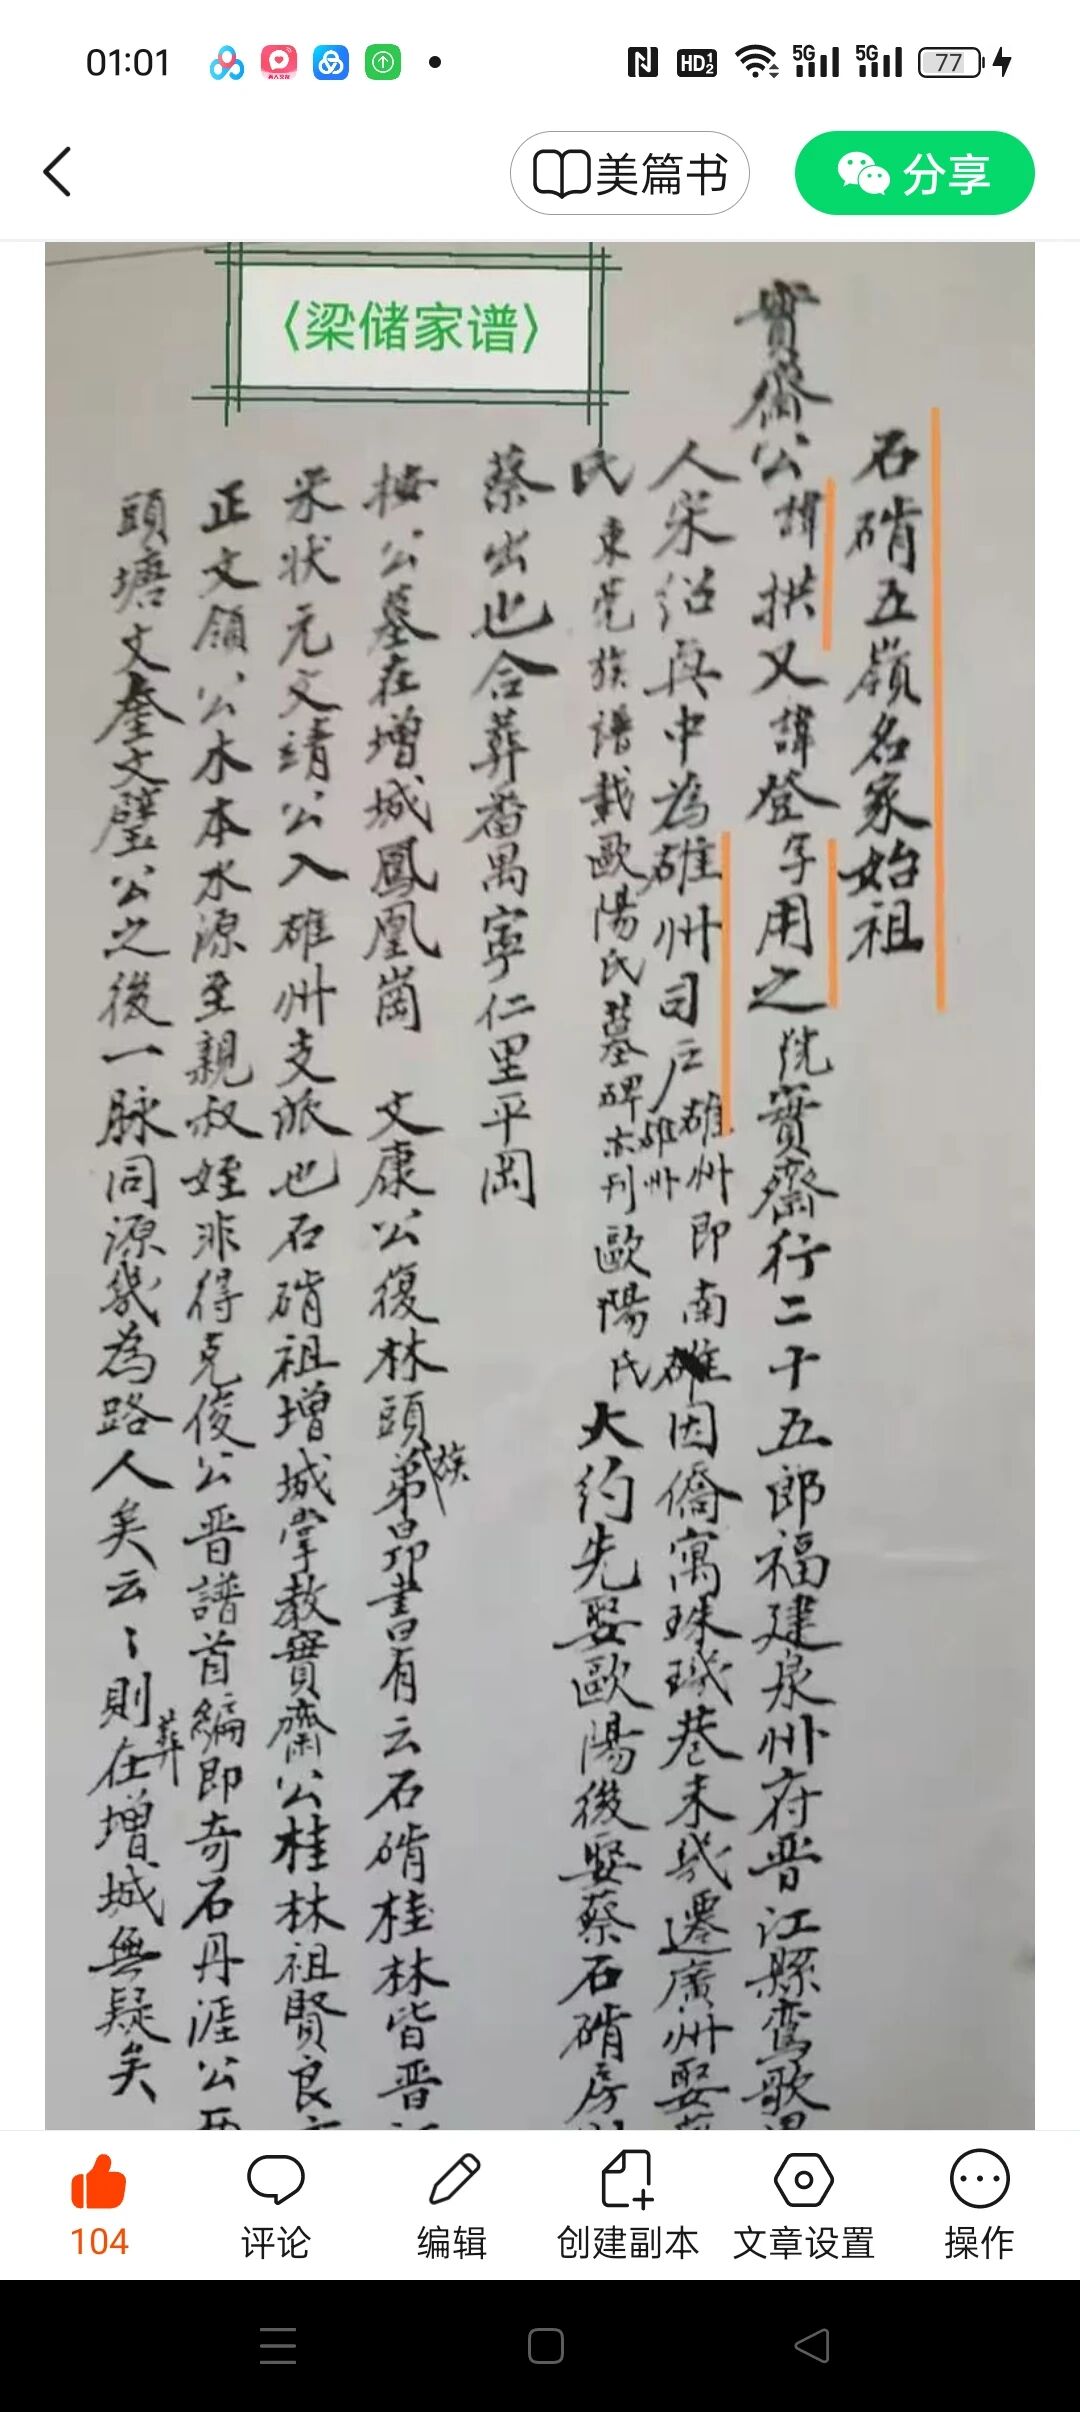 01:01
HD 1 2
5G
5G
77
美篇书
分享
〈梁储家谱〉
石硝五嶺名家始祖
實齋公諱拱又諱登字用之號實齋行二十五郎福建泉州府晋江縣鸞歌里
人宋绍兴中為雄州司户雄州即南雄因僑寓珠璣巷未幾遷廣州娶蔡
雄州
氏東莞族譜载歐陽氏墓碑亦刊歐陽氏大约先娶歐陽後娶蔡石硝房
蔡出也合葬番禺寧仁里平岡
按公墓在增城鳳凰崗 文康公復林頭族弟昂書有云石硝桂林皆晋江
宋状元文靖公入雄州支派也石硝祖增城掌教實齋公桂林祖賢良
正文領公水本水源至親叔姪非得克俊公晋譜首編即奇石丹涯公
頭塘文奎文璧公之後一脉同源幾為路人矣云〻則葬在增城無疑矣
104
评论
编辑
创建副本
文章设置
操作